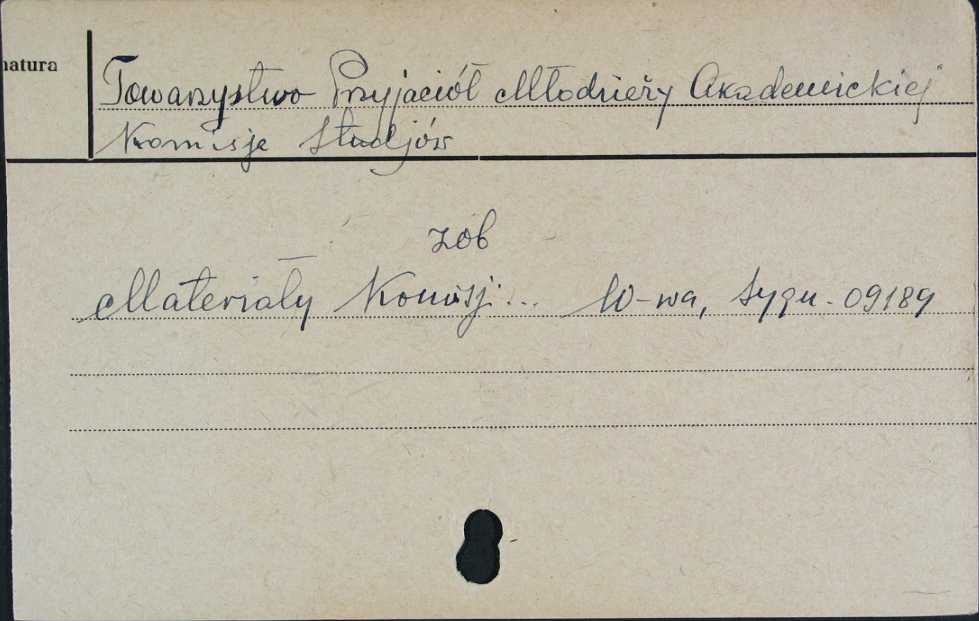 natura
Towarzystwo Przyjaciół Młodzieży Akademickiej
Komisje Studjów
zob
Materiały Komisji... W-wa, sygn. 09189